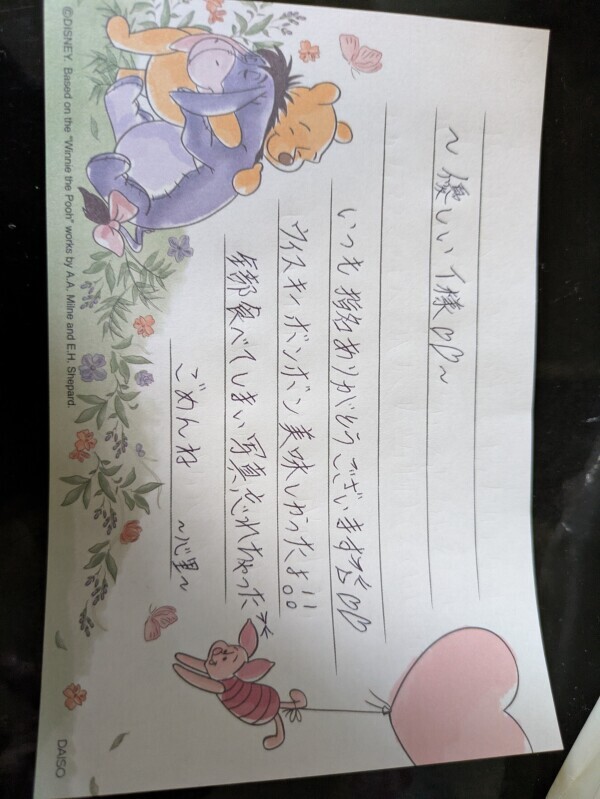 ~優しいイ様♡♡~
いつも指名ありがとうございます♡♡
ウイスキーボンボン美味しかったよ!!
全部食べてしまい写真忘れちゃった
ごめんね
~心里~
©DISNEY. Based on the "Winnie the Pooh" works by A.A. Milne and E.H. Shepard.
DAISO